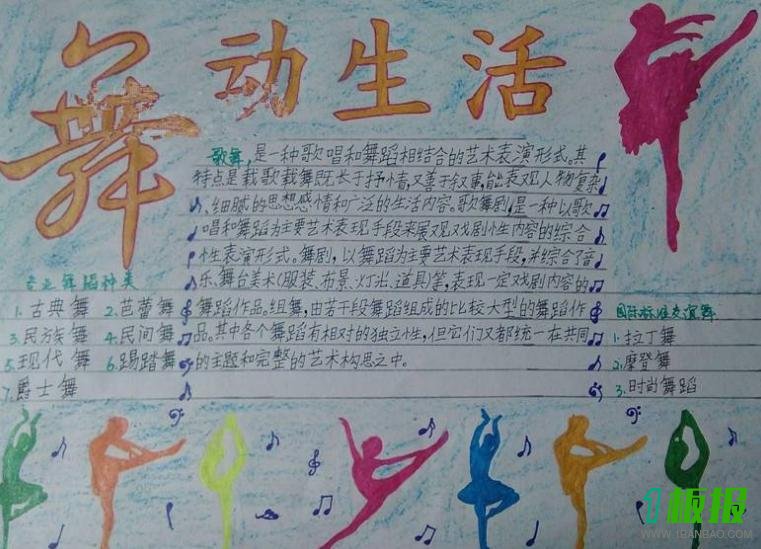 舞动生活
歌舞,是一种歌唱和舞蹈相结合的艺术表演形式。其
特点是载歌载舞既长于抒情,又善于叙事,能表现人物复杂
、细腻的思想感情和广泛的生活内容。歌舞剧,是一种以歌
唱和舞蹈为主要艺术表现手段来展现戏剧性内容的综合
性表演形式。舞剧,以舞蹈为主要艺术表现手段,并综合了音
乐、舞台美术(服装、布景、灯光、道具)等,表现一定戏剧内容的
舞蹈作品。组舞,由若干段舞蹈组成的比较大型的舞蹈作
品。其中各个舞蹈有相对的独立性,但它们又都统一在共同
的主题和完整的艺术构思之中。
专业舞蹈种类
1.古典舞 2.芭蕾舞
3.民族舞 4.民间舞
5.现代舞 6.踢踏舞
7.爵士舞
国际标准交谊舞
1.拉丁舞
2.摩登舞
3.时尚舞蹈
1板报
WWW.1BANBAO.COM